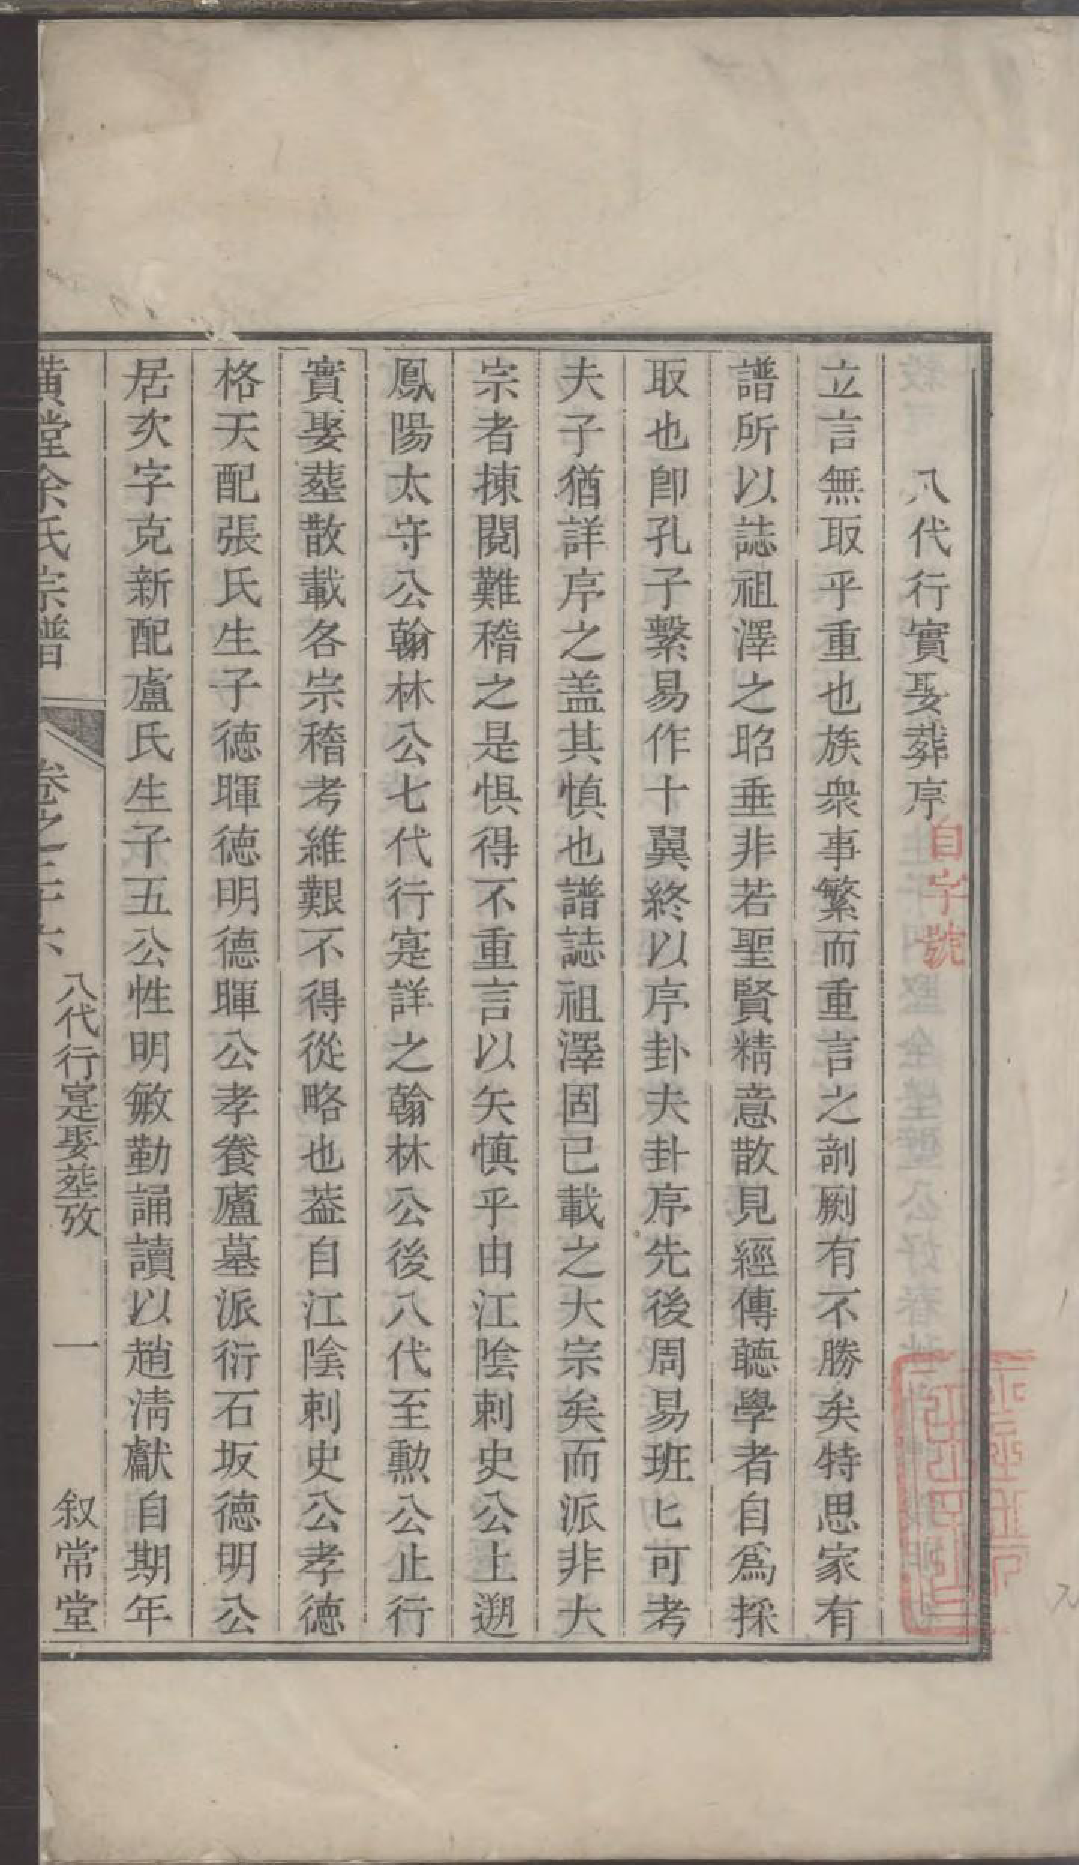 八代行實娶葬序
自字號
立言無取乎重也族衆事繁而重言之剞劂有不勝矣特思家有
譜所以誌祖澤之昭垂非若聖賢精意散見經傳聽學者自爲採
取也卽孔子繫易作十翼終以序卦夫卦序先後周易班匕可考
夫子猶詳序之盖其慎也譜誌祖澤固已載之大宗矣而派非大
宗者揀閱難稽之是惧得不重言以矢慎乎由江陰刺史公上遡
鳳陽太守公翰林公七代行寔詳之翰林公後八代至勲公止行
實娶塟散載各宗稽考維艱不得從略也葢自江陰刺史公孝德
格天配張氏生子德暉德明德暉公孝養廬墓派衍石坂德明公
居次字克新配盧氏生子五公性明敏勤誦讀以趙淸獻自期年
黃堂余氏宗譜
卷之二十六
八代行寔娶塟攷
一
叙常堂